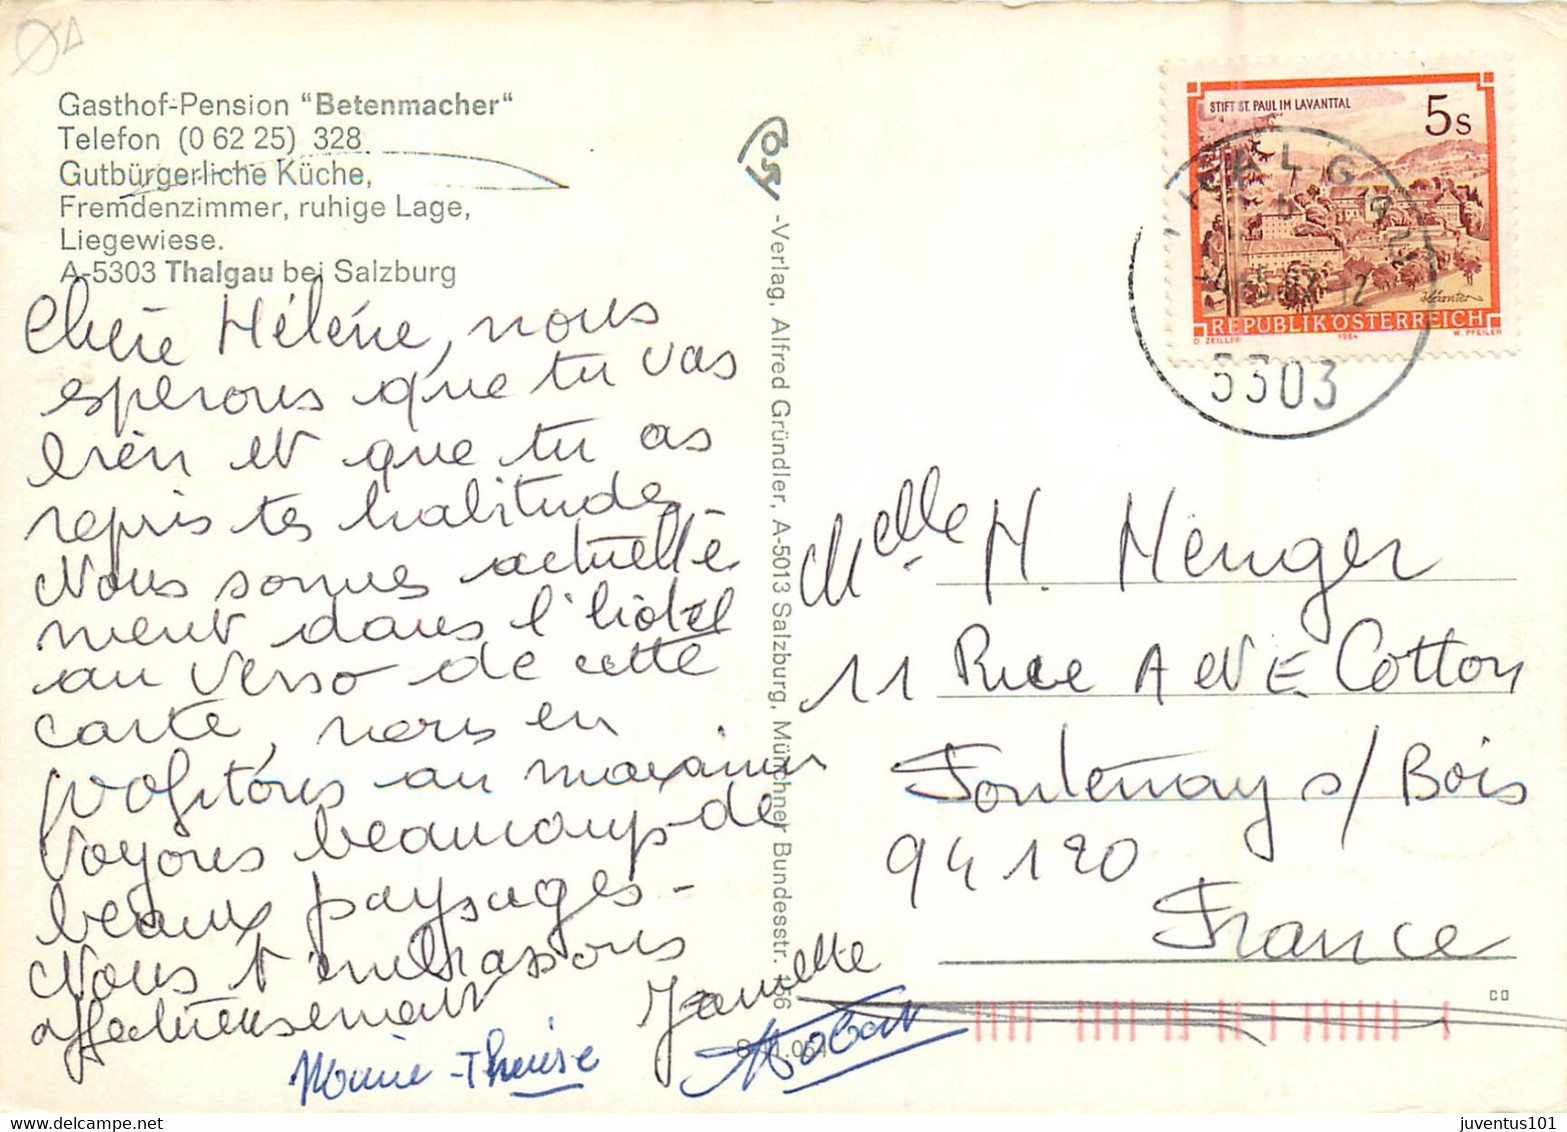 Gasthof-Pension "Betenmacher"
Telefon (0 62 25) 328
Gutbürgerliche Küche,
Fremdenzimmer, ruhige Lage,
Liegewiese.
A-5303 Thalgau bei Salzburg
Chère Hélène, nous
espérons que tu vas
bien et que tu as
repris tes habitudes
Nous sommes actuelle
ment dans l'hôtel
au verso de cette
carte, nous en
profitons au maximum
Voyons beaucoup de
beaux paysages -
Nous t'embrassons
affectueusement
Jeannette
Marie-Thérèse
-Verlag, Alfred Gründler, A-5013 Salzburg, Münchner Bundesstr. 156
STIFT ST. PAUL IM LAVANTTAL
5 S
REPUBLIK ÖSTERREICH
D. ZEILLER 1984 W. PFEILER
THALGAU
5303
Melle H. Menger
11 Rue A et E Cotton
Fontenay s/ Bois
94120
France
CD
juventus101